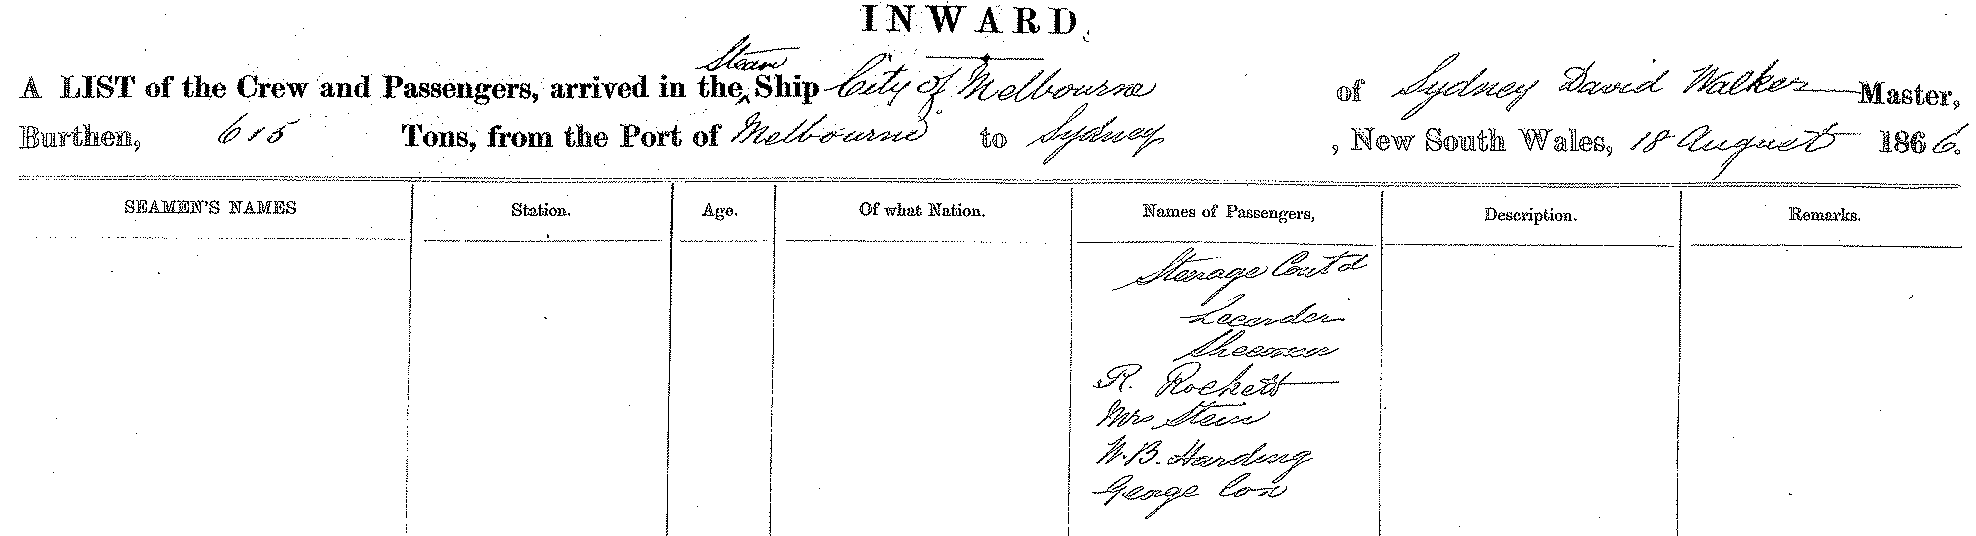 INWARD.
Steam
A LIST of the Crew and Passengers, arrived in the ‸ Ship City of Melbourne of Sydney David Walker Master,
Burthen, 615 Tons, from the Port of Melbourne to Sydney, New South Wales, 18 August 1866.
SEAMEN'S NAMES Station. Age. Of what Nation. Names of Passengers, Description. Remarks.
Steerage Cont'd
R. Rockett
Mrs Stein
W. B. Harding
George Cox